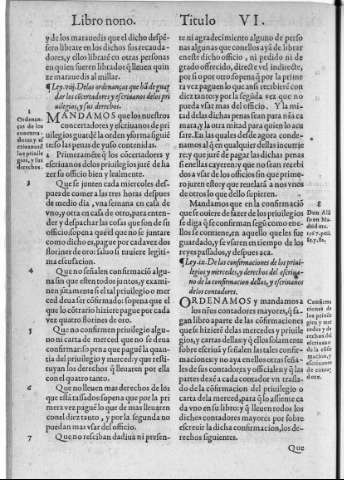 Libro nono. Titulo VI.
y de los marauedis que el dicho despē-
sero librate en los dichos sus recauda-
dores, y ellos librarē en otras personas
en quien fueren librados q̃ lleuen quin
ze marauedis al millar.
¶Ley.viij. De las ordenanças que hā de guar
dar los cōcertadores y escriuanos delos pri
uilegios, y sus derechos.
1
Ordenan-
ças de los
concerta-
dores y es-
criuanos d
los priuile
gios, y sus
derechos.
MANDAMOS que los nuestros
concertadores y escriuanos de pri
uilegios guardē la orden y forma siguiē
te so las penas de yuso contenidas.
2 Primeramēte q̃ los concertadores y
escriuanos delos priuilegios jurē de ha
zer su officio bien y lealmente.
3 Que se junten cada miercoles des-
pues de comer a las tres horas despues
de medio dia, vna semana en casa de
vno, y otra en casa de otro, para enten-
der y despachar las cosas que son de su
officio so pena que el que no se juntare
como dicho es, pague por cada vez dos
florines de oro saluo si tuuiere legiti-
ma escusacion.
4 Que no señalen confirmaciō algu-
na sin que esten todos juntos, y exami-
nen juntamente si el tal priuilegio o mer
ced deua ser cōfirmado: so pena que el
que lo cōtrario hiziere pague por cada
vez quatro florines de oro.
5 Que no confirmen priuilegio algu-
no ni carta de merced que no se deua
confirmar: so pena que pague la quan-
tia del priuilegio y merced y que resti-
tuyan los derechos q̃ lleuaren por ella
con el quatro tanto.
6 Que no lleuen mas derechos de los
que està tassados so pena que por la pri
mera vez pague lo que de mas lleuarē
con el diez tanto, y por la segunda no
puedan mas vsar del officio.
7 Que no resciban dadiua ni presen-
te ni agradecimiento alguno de perso
nas algunas que conellos ayā de librar
eneste dicho officio, ni pedido ni de
grado offrecido, directe vel indirecte,
por si o por otro so pena q̃ por la prime
ra vez paguen lo que assi rescibierē con
diez tanto: y por la segūda vez que no
pueda vsar mas del officio. Y la mi-
tad delas dichas penas sean para nr̄a ca
mara, y la otra mitad para quien lo acu
sare. En las quales desde agora conde-
namos al q̃ en qualquier dellas incurrie
re, y que jurē de pagar las dichas penas
si enellas cayeren, y que no sean recebi
dos a vsar de los officios sin que prime
ro juren esto, y que reuelarā a nos vnos
de otros lo que dello supieren.
8
Don Alō
so en Ma
drid era
1367. peti.
Mandamos que en la confirmaciō
que se ouiere de fazer de los priuilegios
se diga q̃ se confirman segū como me-
jor fuesse contenido, en aquello que les fue
guardado, y se vsaren en tiempo de los
reyes passados, y despues aca.
¶Ley.ix. De las confirmaciones de los priui-
legios y mercedes, y derechos del escriua-
no de la confirmacion dellas, y escriuanos
de los contadores.
Cōfirma
ciones de
los priuile
gios y mer
cedes y de
rechos del
escriuano
de la cōfir
macion, y
escriuanos
de conta-
dores.
ORDENAMOS y mandamos a
los nr̄os contadores mayores, q̃ fa-
gan libro aparte de las cōfirmaciones
que se hizierē delas mercedes y priuile-
gios, y cartas dellas y q̃ ellos solamente
sobre escriuan y señalen las tales confir-
maciones y no aya enellos otras seña-
les de sus contadores y officiales y q̃ las
partes dexē a cada contador vn trasla-
do de la cōfirmacion del priuilegio o
carta de la merced, para q̃ lo assiente ca
da vno en su libro y q̃ lleuen todos los
dichos contadores mayores por sobre
escreuir la dicha confirmacion, los de-
rechos siguientes.
Que